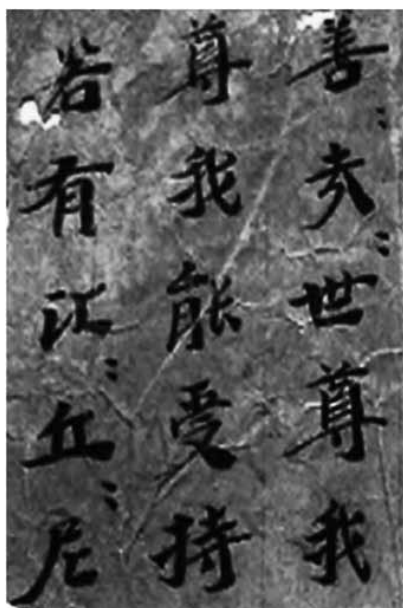 善〻哉〻世尊我
尊我能受持
若有比〻丘〻尼